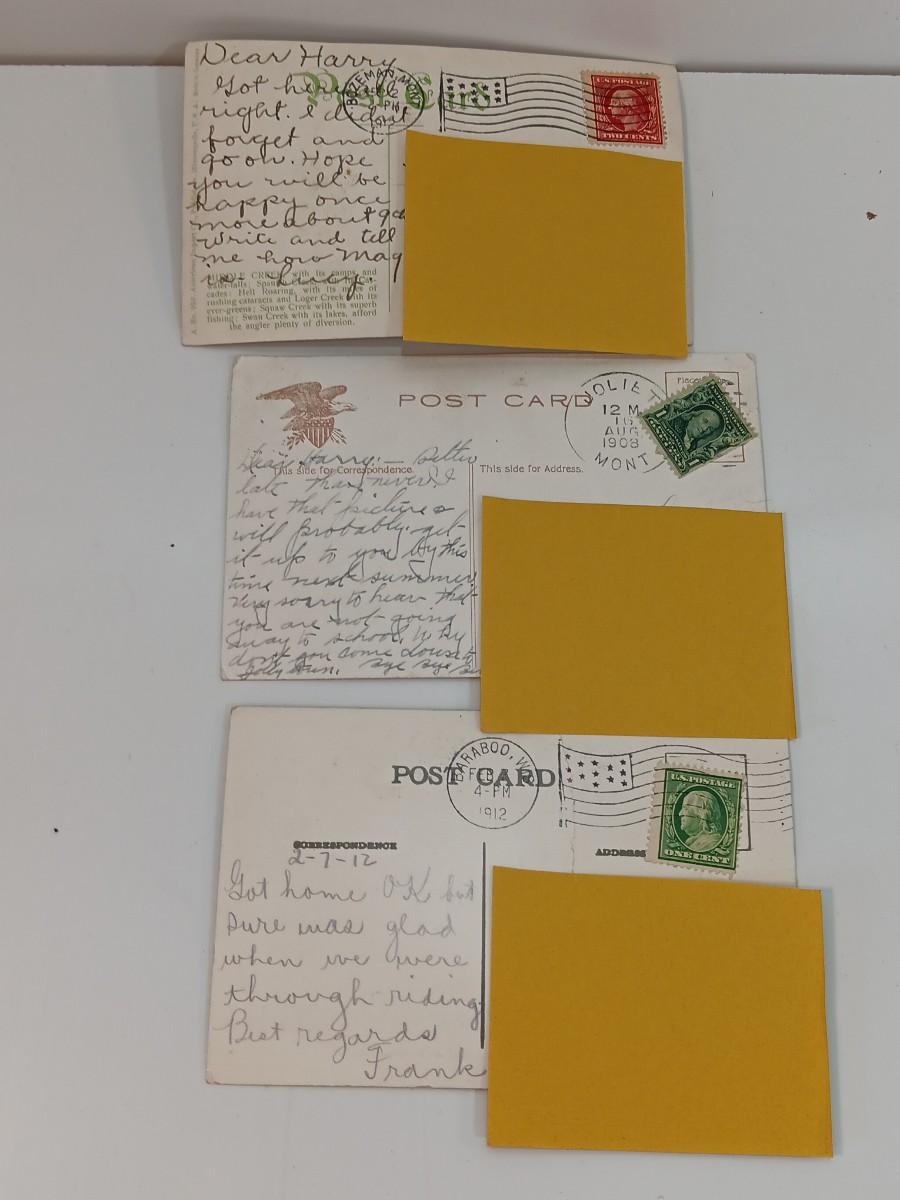 Dear Harry
Post Card
BOZEMAN, MONT
PM
U.S. POSTAGE
TWO CENTS
Got here all
right. I didn't
forget and
go on. Hope
you will be
happy once
more about
Write and tell
me how Mag
is. Lucy.
MIDDLE CREEK with its camps and
water-falls;
cades; Hell Roaring, with its miles of
rushing cataracts and Loger Creek with its
ever-greens; Squaw Creek with its superb
fishing; Swan Creek with its lakes, afford
the angler plenty of diversion.
POST CARD
JOLIET
12 M
16
AUG
1908
MONT.
This side for Correspondence.
This side for Address.
Dear Harry:— Better
late than never. I
have that picture &
will probably get
it up to you by this
time next summer.
Very sorry to hear that
you are not going
away to school. Why
don't you come down to
Bye Bye
POST CARD
BARABOO, WIS
FEB
4-PM
1912
U.S. POSTAGE
ONE CENT
CORRESPONDENCE
ADDRESS
2-7-12
Got home OK but
sure was glad
when we were
through riding.
Best regards
Frank